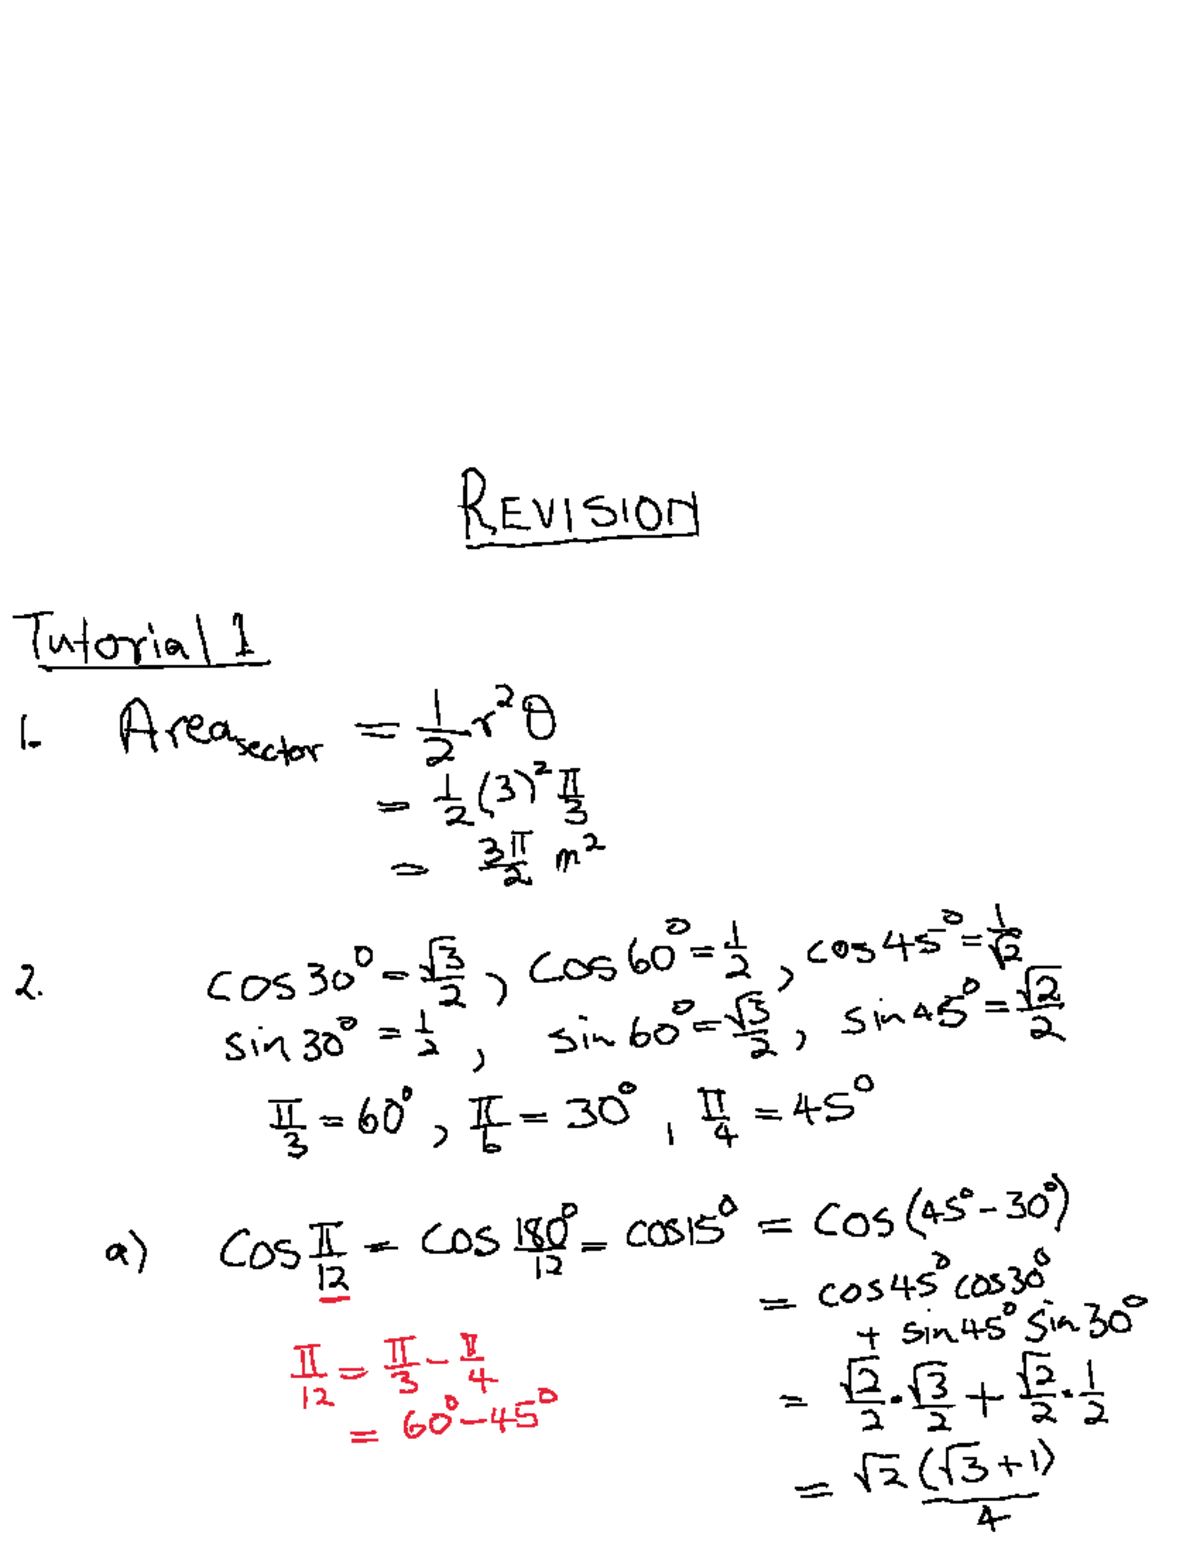 REVISION
Tutorial 1
1. Area sector = 1/2 r²θ
= 1/2 (3)² π/3
= 3π/2 m²
2. cos 30° = √3/2, cos 60° = 1/2, cos 45° = 1/√2
sin 30° = 1/2, sin 60° = √3/2, sin 45° = √2/2
π/3 = 60°, π/6 = 30°, π/4 = 45°
a) cos π/12 = cos 180°/12 = cos 15° = cos (45° - 30°)
= cos 45° cos 30°
+ sin 45° sin 30°
π/12 = π/3 - π/4
= 60° - 45°
= √2/2 · √3/2 + √2/2 · 1/2
= √2 (√3 + 1)/4